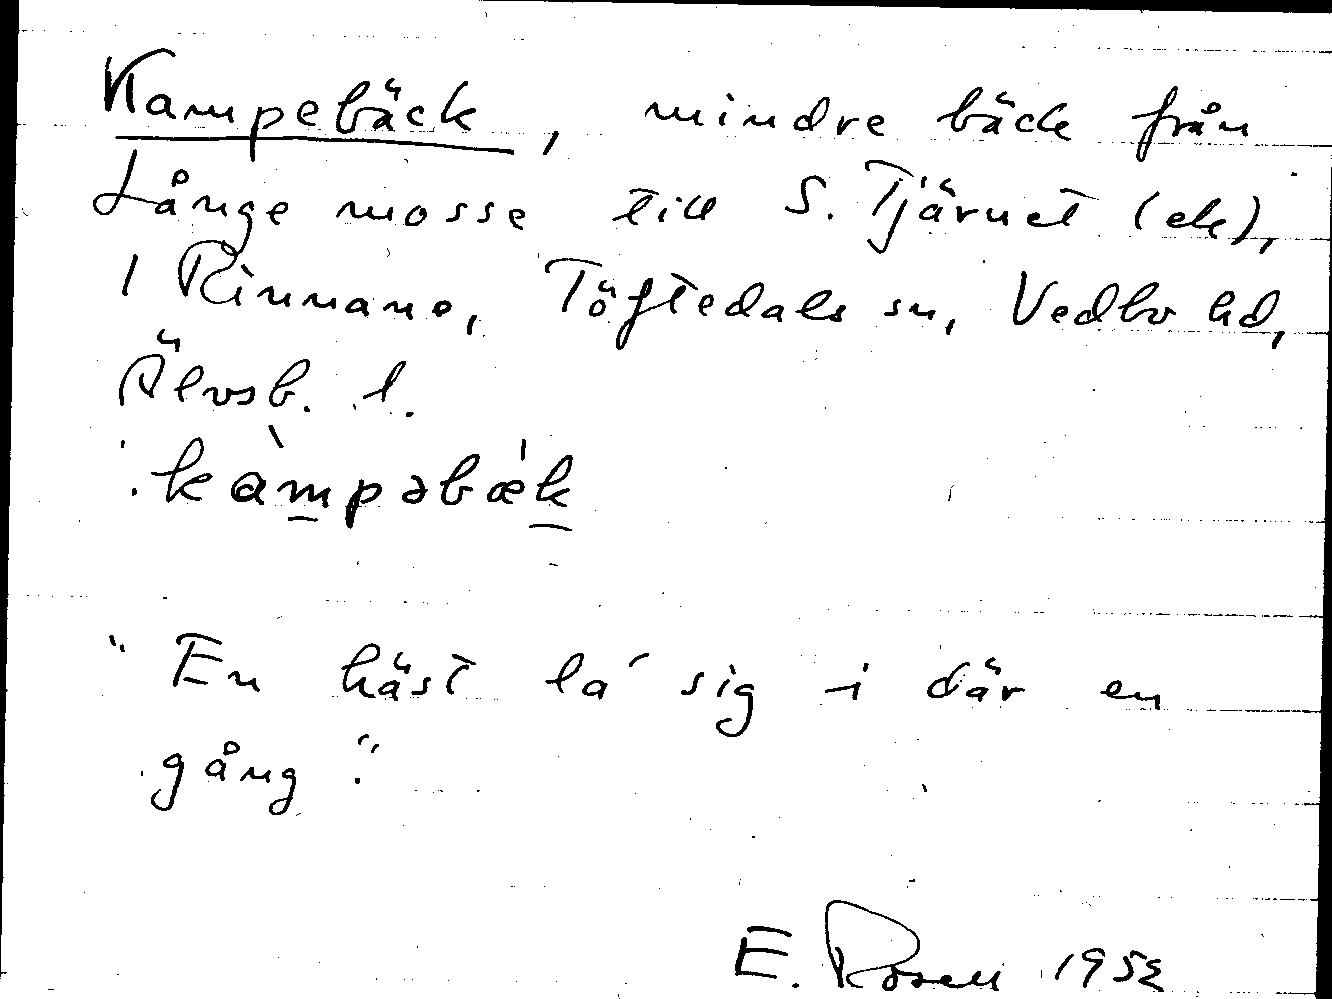 Kampebäck, mindre bäck från
Långe mosse till S. Tjärnet (ek),
1 Rinnane, Töftedals sn, Vedbo hd,
Älvsb. l.
kàmpəbæ̀k
"En häst la' sig i där en
gång".
E. Rosell 1952